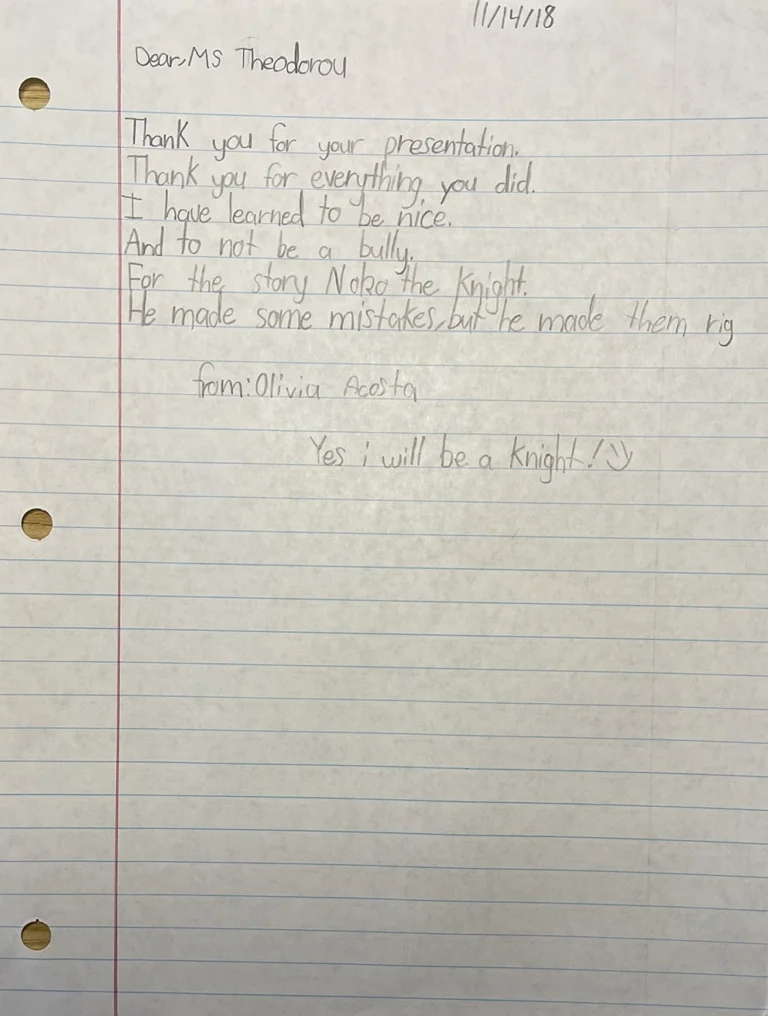 11/14/18
Dear, MS Theodorou
Thank you for your presentation.
Thank you for everything you did.
I have learned to be nice.
And to not be a bully.
For the story Noko the Knight.
He made some mistakes, but he made them rig
from: Olivia Acosta
Yes i will be a Knight! :)